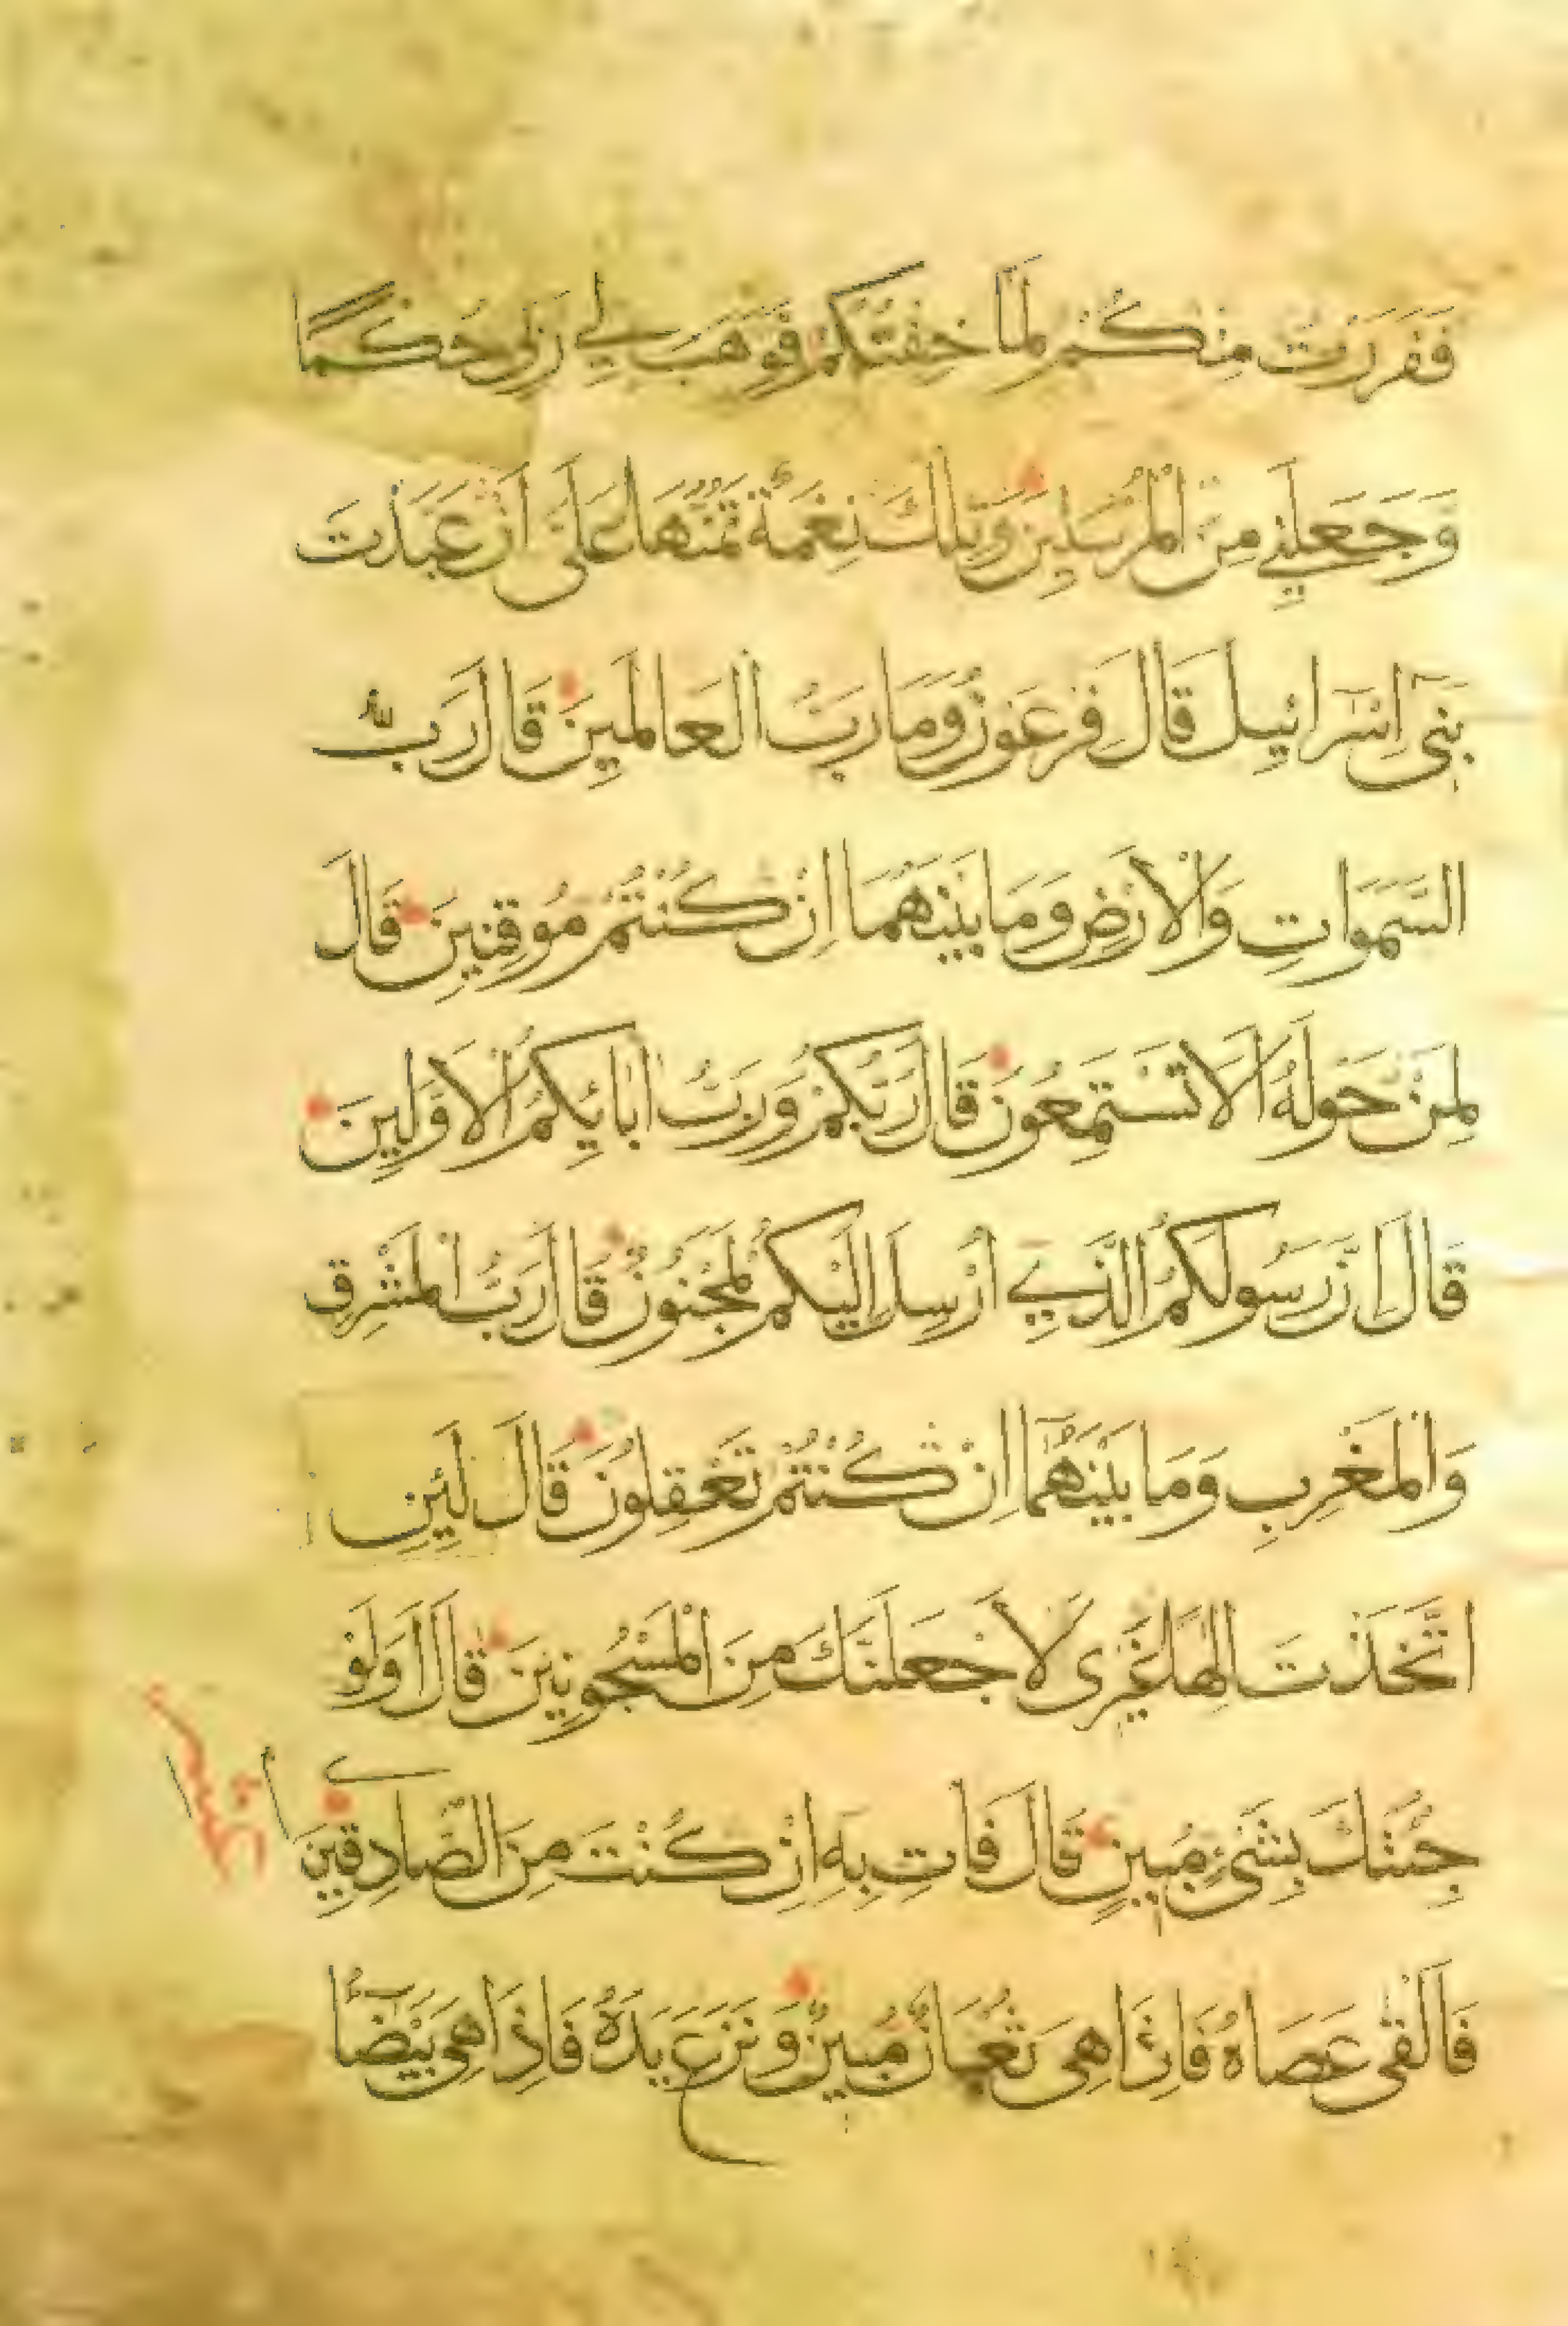 فَفَرَرْتُ مِنْكُمْ لَمَّا خِفْتُكُمْ فَوَهَبَ لِي رَبِّي حُكْمًا
وَجَعَلَنِي مِنَ الْمُرْسَلِينَ وَتِلْكَ نِعْمَةٌ تَمُنُّهَا عَلَيَّ اَنْ عَبَّدْتَ
بَنِي اِسْرَائِيلَ قَالَ فِرْعَوْنُ وَمَا رَبُّ الْعَالَمِينَ قَالَ رَبُّ
السَّمَوَاتِ وَالْاَرْضِ وَمَا بَيْنَهُمَا اِنْ كُنْتُمْ مُوقِنِينَ قَالَ
لِمَنْ حَوْلَهُ اَلَا تَسْتَمِعُونَ قَالَ رَبُّكُمْ وَرَبُّ اٰبَائِكُمُ الْاَوَّلِينَ
قَالَ اِنَّ رَسُولَكُمُ الَّذِي اُرْسِلَ اِلَيْكُمْ لَمَجْنُونٌ قَالَ رَبُّ الْمَشْرِقِ
وَالْمَغْرِبِ وَمَا بَيْنَهُمَا اِنْ كُنْتُمْ تَعْقِلُونَ قَالَ لَئِنِ
اتَّخَذْتَ اِلٰهًا غَيْرِي لَاَجْعَلَنَّكَ مِنَ الْمَسْجُونِينَ قَالَ اَوَلَوْ
جِئْتُكَ بِشَيْءٍ مُبِينٍ قَالَ فَاْتِ بِهِ اِنْ كُنْتَ مِنَ الصَّادِقِينَ
فَاَلْقٰى عَصَاهُ فَاِذَا هِيَ ثُعْبَانٌ مُبِينٌ وَنَزَعَ يَدَهُ فَاِذَا هِيَ بَيْضَاءُ